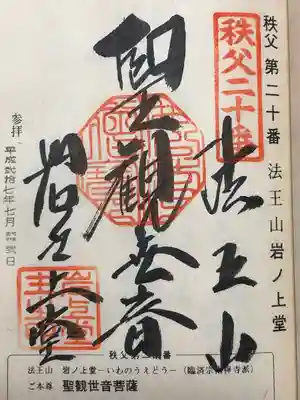 秩父 第二十番 法王山岩ノ上堂
秩父二十番
法王山
聖観世音
岩之上堂
参拝 平成弐拾七年七月
秩父第二十番
法王山 岩ノ上堂―いわのうえどう―(臨済宗南禅寺派)
ご本尊 聖観世音菩薩